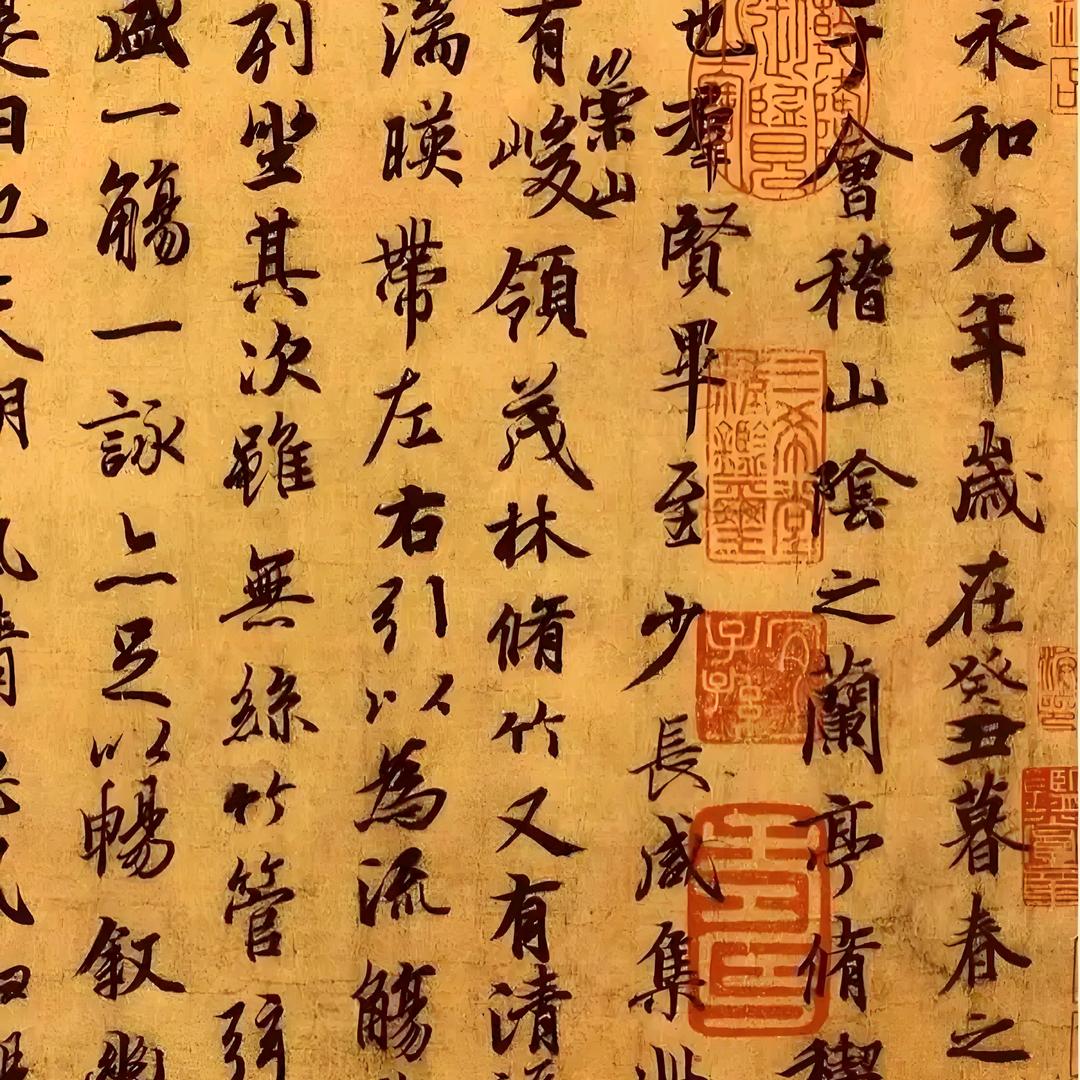 永和九年歲在癸丑暮春之
于會稽山陰之蘭亭脩禊
也羣賢畢至少長咸集此
崇山
有峻領茂林脩竹又有清
湍暎帶左右引以為流觴
列坐其次雖無絲竹管弦
盛一觴一詠亦足以暢叙幽
是日也天朗
三希堂精鑑璽
宜子孫